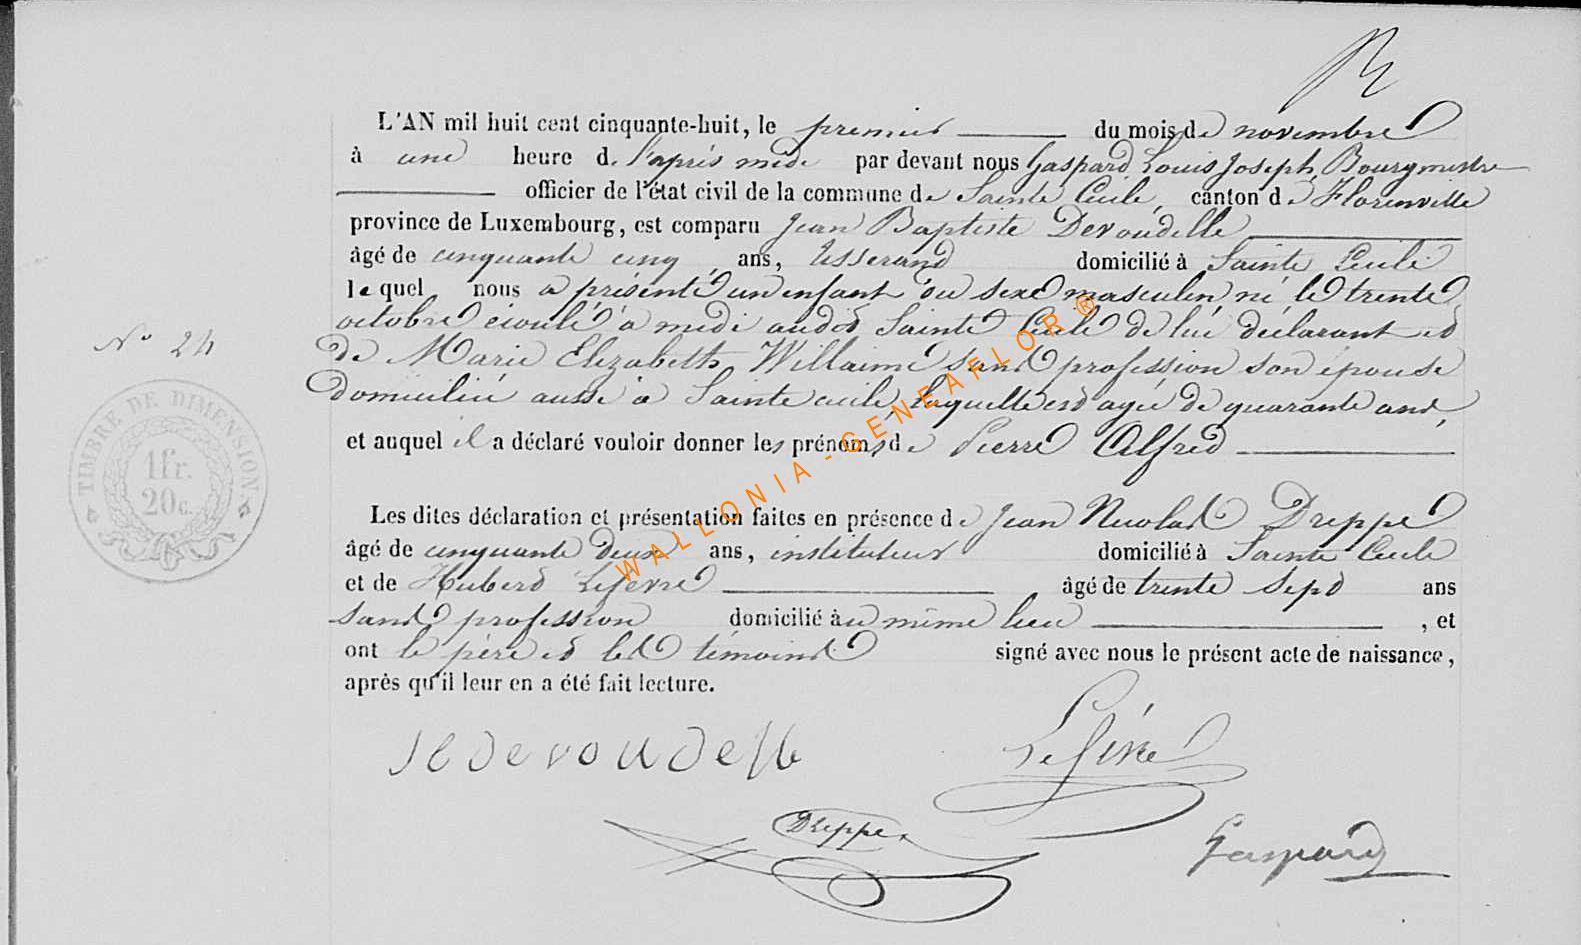 L'AN mil huit cent cinquante-huit, le premier du mois de novembre
à une heure de l'après midi par devant nous Gaspard Louis Joseph, Bourgmestre
officier de l'état civil de la commune de Sainte Cecile, canton de Florenville
province de Luxembourg, est comparu Jean Baptiste Devoudelle
âgé de cinquante cinq ans, tisserand domicilié à Sainte Cecile
lequel nous a présenté un enfant du sexe masculin né le trente
octobre écoulé à midi audit Sainte Cecile de lui déclarant et
de Marie Elizabeth Willaime sans profession son épouse
domiciliée aussi à Sainte cecile, laquelle est agée de quarante ans,
et auquel il a déclaré vouloir donner les prénoms de Pierre Alfred
N° 24
TIMBRE DE DIMENSION
1fr.
20c.
Les dites déclaration et présentation faites en présence de Jean Nicolas Dreppe
âgé de cinquante deux ans, instituteur domicilié à Sainte Cecile
et de Hubert Lefevre âgé de trente sept ans
sans profession domicilié au même lieu , et
ont le père et les témoins signé avec nous le présent acte de naissance,
après qu'il leur en a été fait lecture.
Devoudelle Lefèvre
Dreppe
Gaspard
WALLONIA-GENEAFLOR®